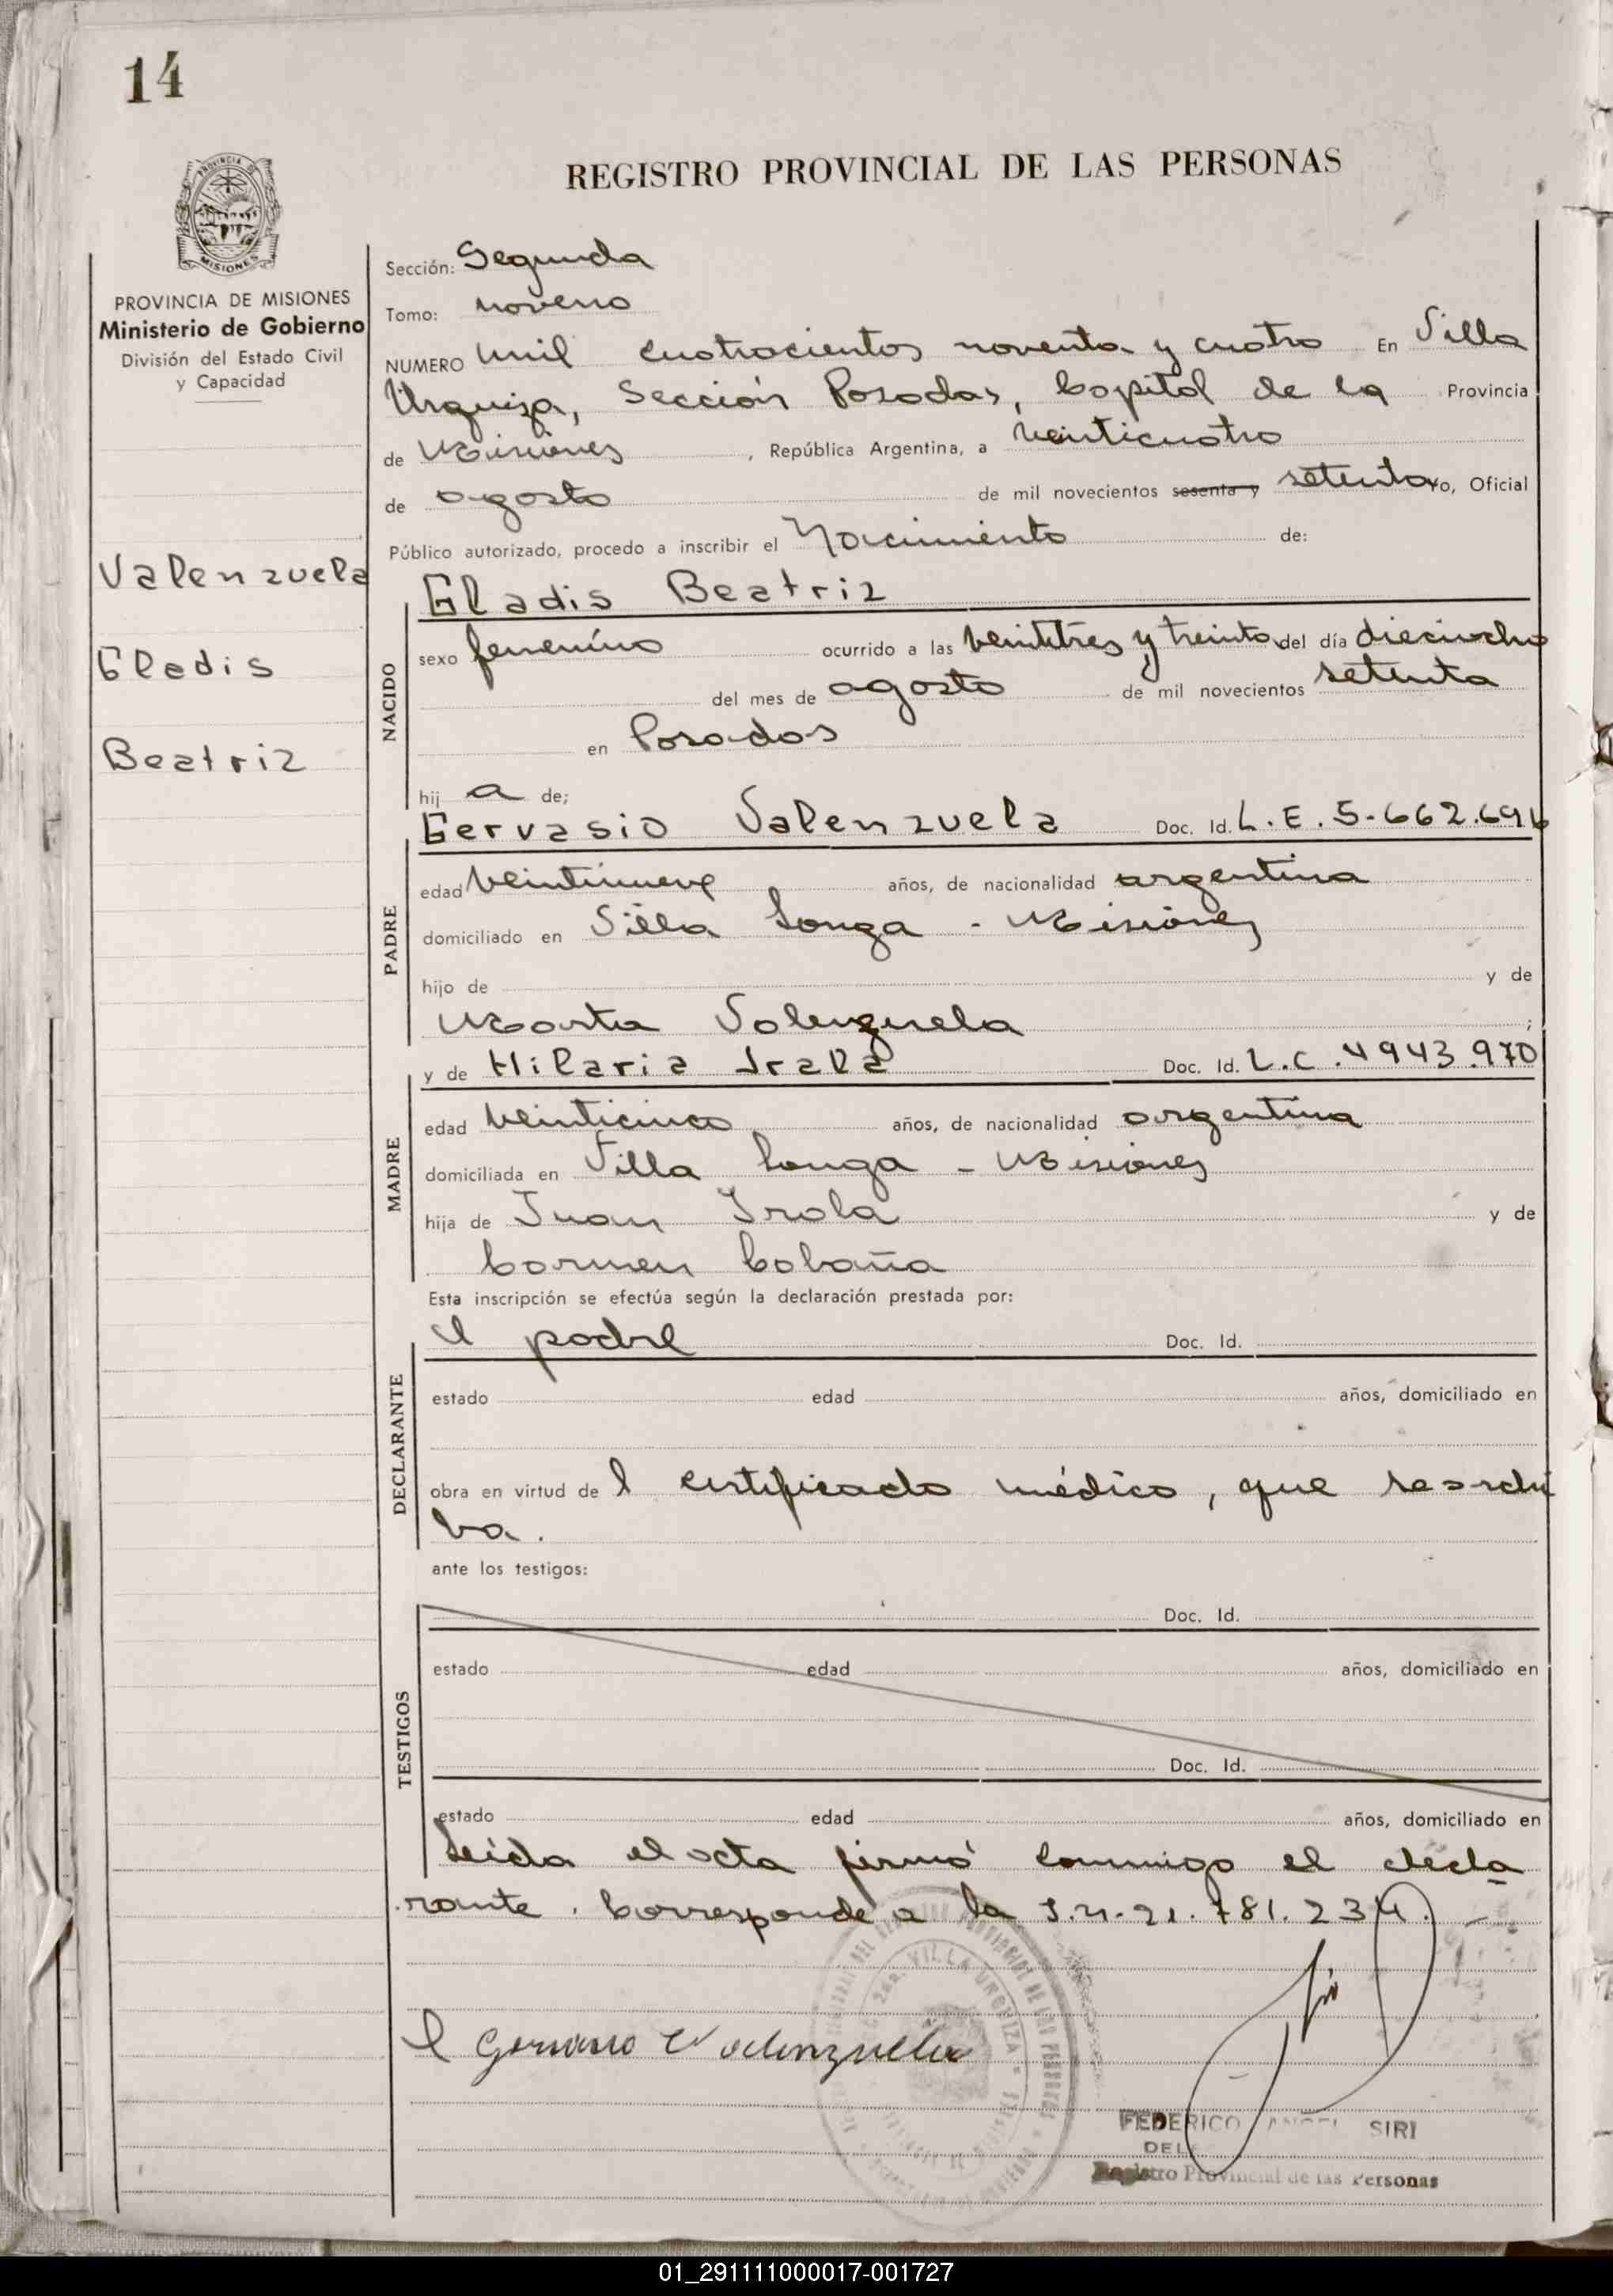 14
REGISTRO PROVINCIAL DE LAS PERSONAS
PROVINCIA DE MISIONES
PROVINCIA DE MISIONES
Ministerio de Gobierno
División del Estado Civil
y Capacidad
Valenzuela
Gladis
Beatriz
Sección: Segunda
Tomo: noveno
NUMERO mil cuatrocientos noventa y cuatro En Villa
Urquiza, Sección Posadas, Capital de la Provincia
de Misiones, República Argentina, a veinticuatro
de agosto de mil novecientos sesenta y setenta yo, Oficial
Público autorizado, procedo a inscribir el Nacimiento de:
NACIDO
Gladis Beatriz
sexo femenino ocurrido a las veintitres y treinta del día dieciocho
del mes de agosto de mil novecientos setenta
en Posadas
hij a de;
PADRE
Gervasio Valenzuela Doc. Id. L.E. 5.662.696
edad veintinueve años, de nacionalidad argentina
domiciliado en Villa Longa - Misiones
hijo de y de
Marta Valenzuela ;
MADRE
y de Hilaria Irala Doc. Id. L.C. 4943.970
edad veinticinco años, de nacionalidad argentina
domiciliada en Villa Longa - Misiones
hija de Juan Irala y de
Carmen Cabaña
Esta inscripción se efectúa según la declaración prestada por:
DECLARANTE
el padre Doc. Id.
estado edad años, domiciliado en
obra en virtud de l certificado médico, que se archi
va.
ante los testigos:
TESTIGOS
Doc. Id.
estado edad años, domiciliado en
Doc. Id.
estado edad años, domiciliado en
Leída el acta firmó conmigo el decla
rante. Corresponde a la I.N. 21.781.234.
Gervasio Valenzuela
VILLA URQUIZA
FEDERICO ANGEL SIRI
Registro Provincial de las Personas
01_291111000017-001727